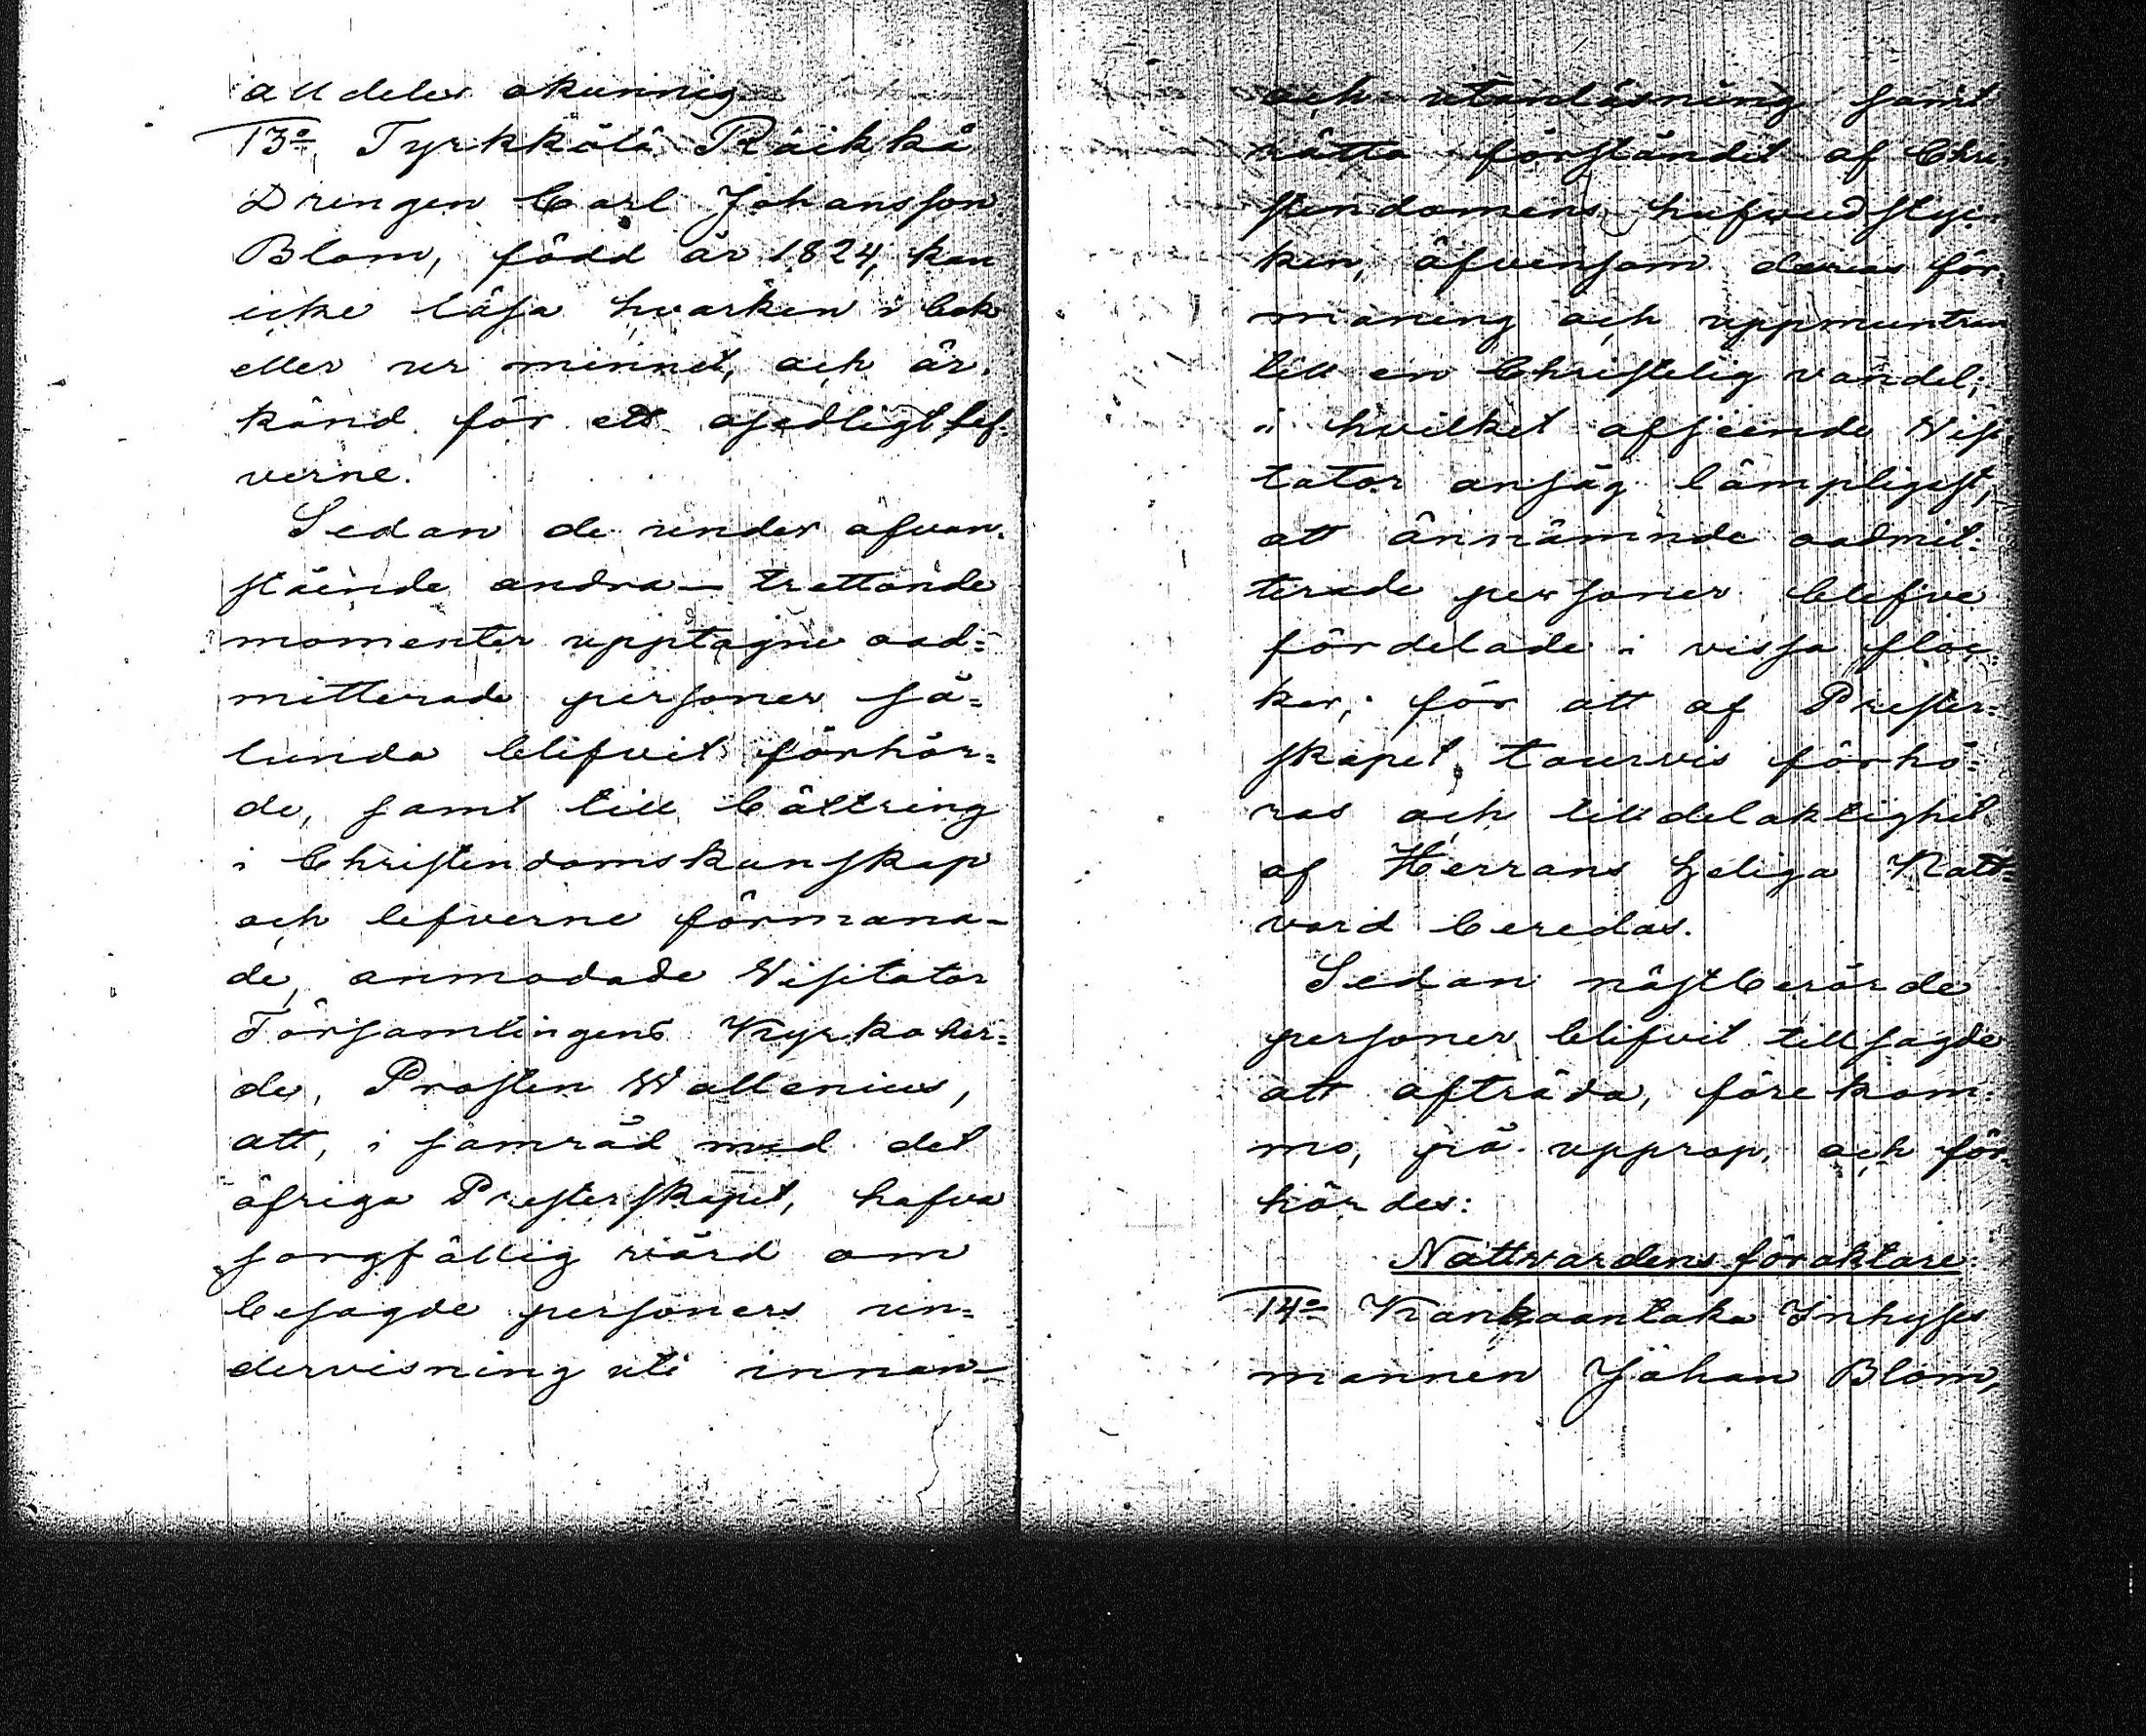 alldeles okunnig.
13o Tyrkkölä Räikkä
Drengen Carl Johansson
Blom, född år 1824, kan
icke läsa hvarken i bok
eller ur minnet, och är
känd för ett osedligt lef-
verne.
Sedan de under ofvan-
stående andra — trettonde
momenter upptagne oad=
mitterade personer så=
lunda blifvit förhör=
de, samt till bättring
i Christendomskunskap
och lefverne förmana-
de, anmodade Visitator
Församlingens Kyrkoher=
de, Prosten Wallenius,
att, i samråd med det
öfriga Presterskapet, hafva
sorgfällig vård om
besagde personers un=
dervisning uti innan-
och utanläsning samt
rätta förståndet af Chri-
stendomens hufvudstyc-
ken, äfvensom deras för-
maning och uppmuntran
till en Christelig vandel;
i hvilket afseende Visi-
tator ansåg lämpligast,
att ännämnde oadmit-
terade personer blefve
fördelade i vissa floc-
kar, för att af Prester=
skapet tourvis förhö=
ras och till delaktighet
af Herrans heliga Natt=
vard beredas.
Sedan nästberörde
personer blifvit tillsagde
att afträda, förekom-
mo, på upprop, och för-
hördes:
Nattvardens föraktare
14o Kankaantaka Inhyses
mannen Johan Blom,